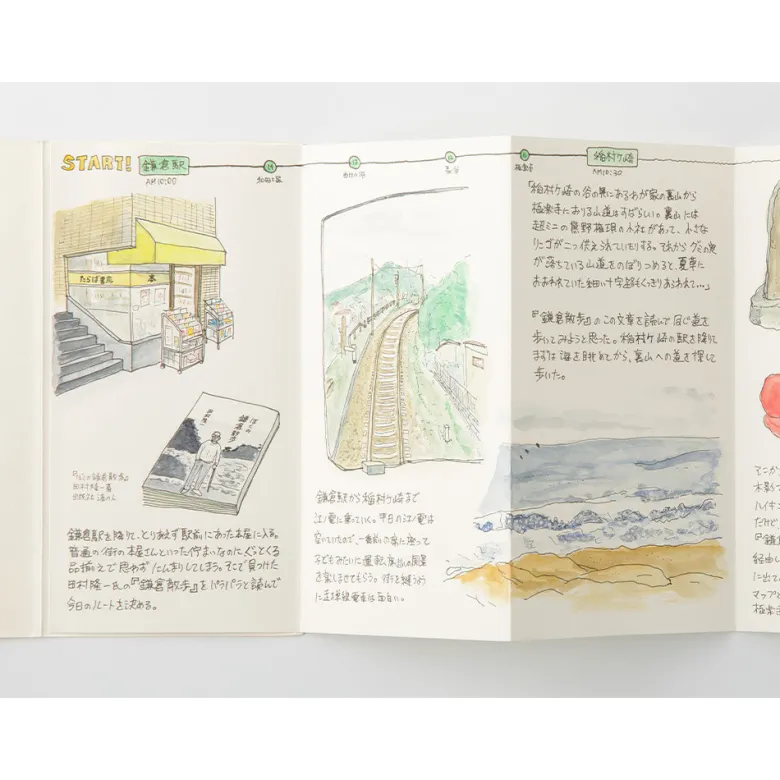 START!
鎌倉駅
AM10:00
和田塚
由比ヶ浜
長谷
極楽寺
稲村ケ崎
AM10:30
たらば書房
本
ぼくの
鎌倉散歩
田村隆一
『ぼくの鎌倉散歩』
田村隆一著
出版社 港の人
鎌倉駅を降りて、とりあえず駅前にあった本屋に入る。
普通の街の本屋さんといった佇まいなのにぐっとくる
品揃えで思わずにんまりしてしまう。そこで見つけた
田村隆一氏の『鎌倉散歩』をパラパラと読んで
今日のルートを決める。
鎌倉駅から稲村ケ崎まで
江ノ電に乗っていく。平日の江ノ電は
空いていたので、一番前の席に座って
子どもみたいに運転席越しの風景
を楽しませてもらう。
単線電車は面白い。
「稲村ケ崎の谷の奥にあるわが家の裏山から
極楽寺におりる山道はすばらしい。裏山には
超ミニの熊野権現の小社があって、小さな
リンゴが二つ供えられていたりする。それからグミの実
が落ちている山道をのぼりつめると、夏草に
おおわれていた細い十字路もくっきりあらわれて…」
『鎌倉散歩』のこの文章を読んで同じ道を
歩いてみようと思った。稲村ケ崎の駅を降りて
まずは海を眺めてから、裏山への道を探して
歩いた。
マニか
木影
ハイキン
だけど
『鎌倉
経由し
に出て
マップと
極楽寺